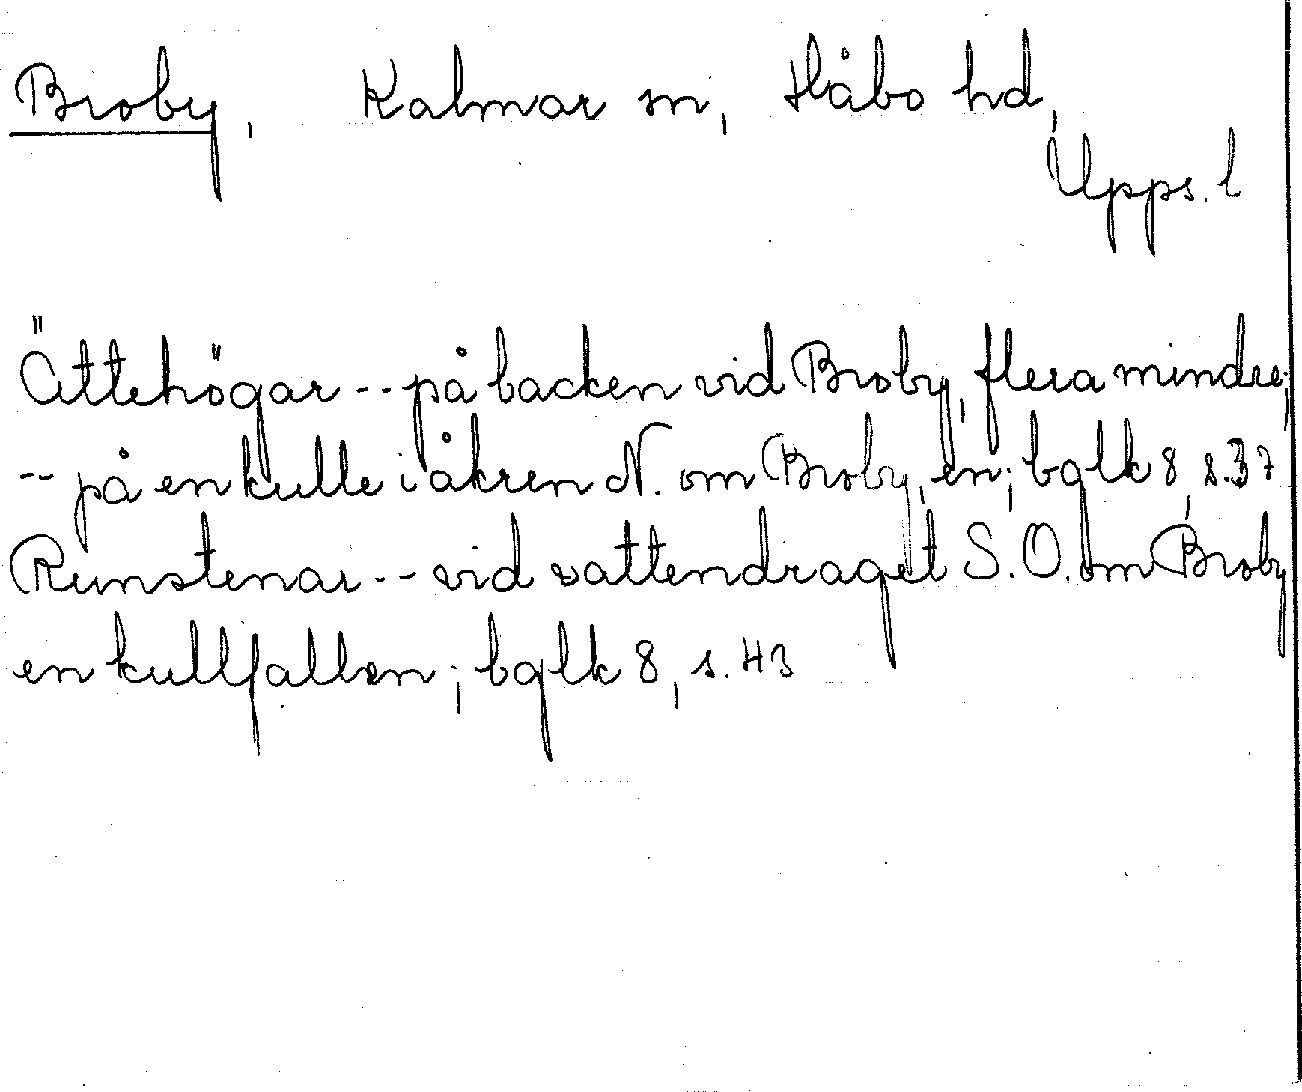 Broby, Kalmar sn, Håbo hd,
Upps. l
Ättehögar -- på backen vid Broby, flera mindre;
-- på en kulle i åkren N. om Broby, en; bglk 8, s. 37
Runstenar -- vid vattendraget S.O. om Broby
en kullfallen; bglk 8, s. 43